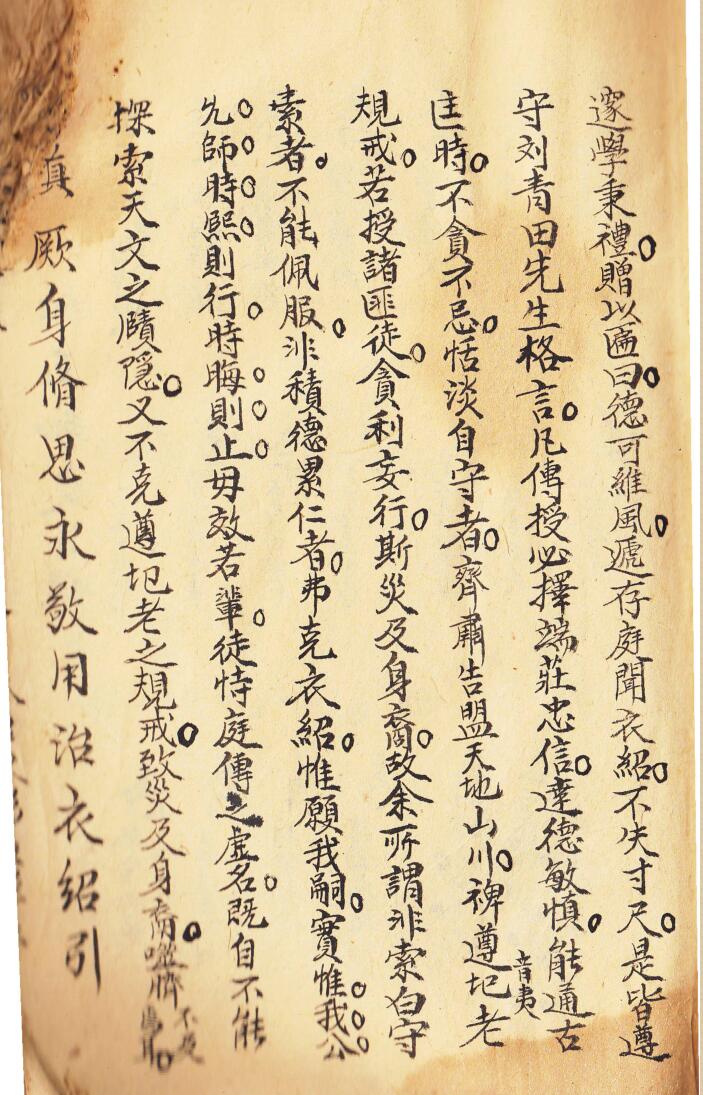 邃學秉禮贈以匾曰德可維風遞存庭聞衣紹不失寸尺是皆遵
守刘青田先生格言凡傳授必擇端莊忠信達德敏慎能通古
音夷
匡時不貪不忌恬淡自守者齊肅告盟天地山川裨遵圯老
規戒若授諸匪徒貪利妄行斯災及身裔故余所謂非索白守
素者不能佩服非積德累仁者弗克衣紹惟願我嗣實惟我公
先師時熙則行時晦則止毋效若輩徒恃庭傳之虛名既自不能
探索天文之賾隱又不克遵圯老之規戒致災及身裔噬臍
不及
真厥身脩思永敬用治衣紹引